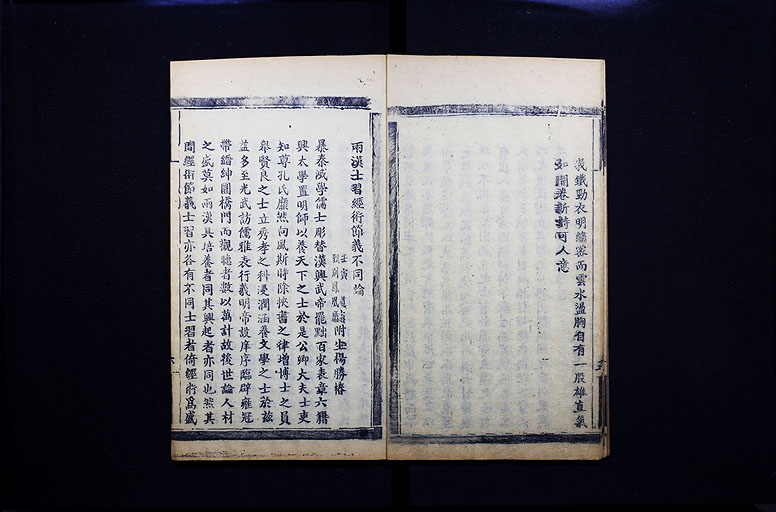 義鐵勁衣明繡畧而雲水盪胸自有一股雄直氣
如開卷新詩可人意
兩漢士習經術節義不同論
壬寅道試
附生楊勝椿
暴秦滅學儒士彫替漢興武帝罷黜百家表章六籍
興太學置明師以養天下之士於是公卿大夫士吏
知尊孔氏靡然向風斯時除挾書之律增博士之員
舉賢良之士立秀孝之科浸潤涵養文學之士於茲
益多至光武訪儒雅表行義明帝設庠序臨辟雍冠
帶縉紳圜橋門而觀聽者數以萬計故後世論人材
之盛莫如兩漢其培養者同其興起者亦同也然其
間經術節義士習亦各有不同士習者倚經術為盛